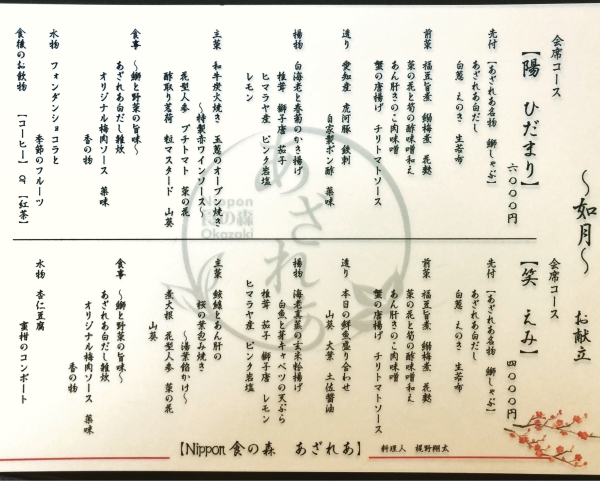 ～如月～
お献立
会席コース
【陽　ひだまり】
六〇〇〇円
先付　【あざれあ名物　鰤しゃぶ】
あざれあ白だし
白葱　えのき　生若布
前菜　福豆旨煮　鰯梅煮　花麩
菜の花と筍の酢味噌和え
あん肝きのこ肉味噌
蟹の唐揚げ　チリトマトソース
造り　愛知産　虎河豚　鉄刺
自家製ポン酢　薬味
揚物　白海老と春菊のかき揚げ
椎茸　獅子唐　茄子
ヒマラヤ産　ピンク岩塩
レモン
主菜　和牛炭火焼き　玉葱のオーブン焼き
～特製赤ワインソース～
花型人参　プチトマト　菜の花
酢取り茗荷　粒マスタード　山葵
食事　～鰤と野菜の旨味～
あざれあ白だし雑炊
オリジナル梅肉ソース　薬味
香の物
水物　フォンダンショコラと
季節のフルーツ
食後のお飲物　【コーヒー】or【紅茶】
会席コース
【笑　えみ】
四〇〇〇円
先付　【あざれあ名物　鰤しゃぶ】
あざれあ白だし
白葱　えのき　生若布
前菜　福豆旨煮　鰯梅煮　花麩
菜の花と筍の酢味噌和え
あん肝きのこ肉味噌
蟹の唐揚げ　チリトマトソース
造り　本日の鮮魚盛り合わせ
山葵　大葉　土佐醤油
揚物　海老真薯の玄米粉揚げ
白魚と芽キャベツの天ぷら
椎茸　茄子　獅子唐　レモン
ヒマラヤ産　ピンク岩塩
主菜　鮟鱇とあん肝の
桜の葉包み焼き
～湯葉餡かけ～
煮大根　花型人参　菜の花
山葵
食事　～鰤と野菜の旨味～
あざれあ白だし雑炊
オリジナル梅肉ソース　薬味
香の物
水物　杏仁豆腐
蜜柑のコンポート
あざれあ
Nippon
食の森
Okazaki
【Nippon 食の森　あざれあ】　料理人　梶野翔太